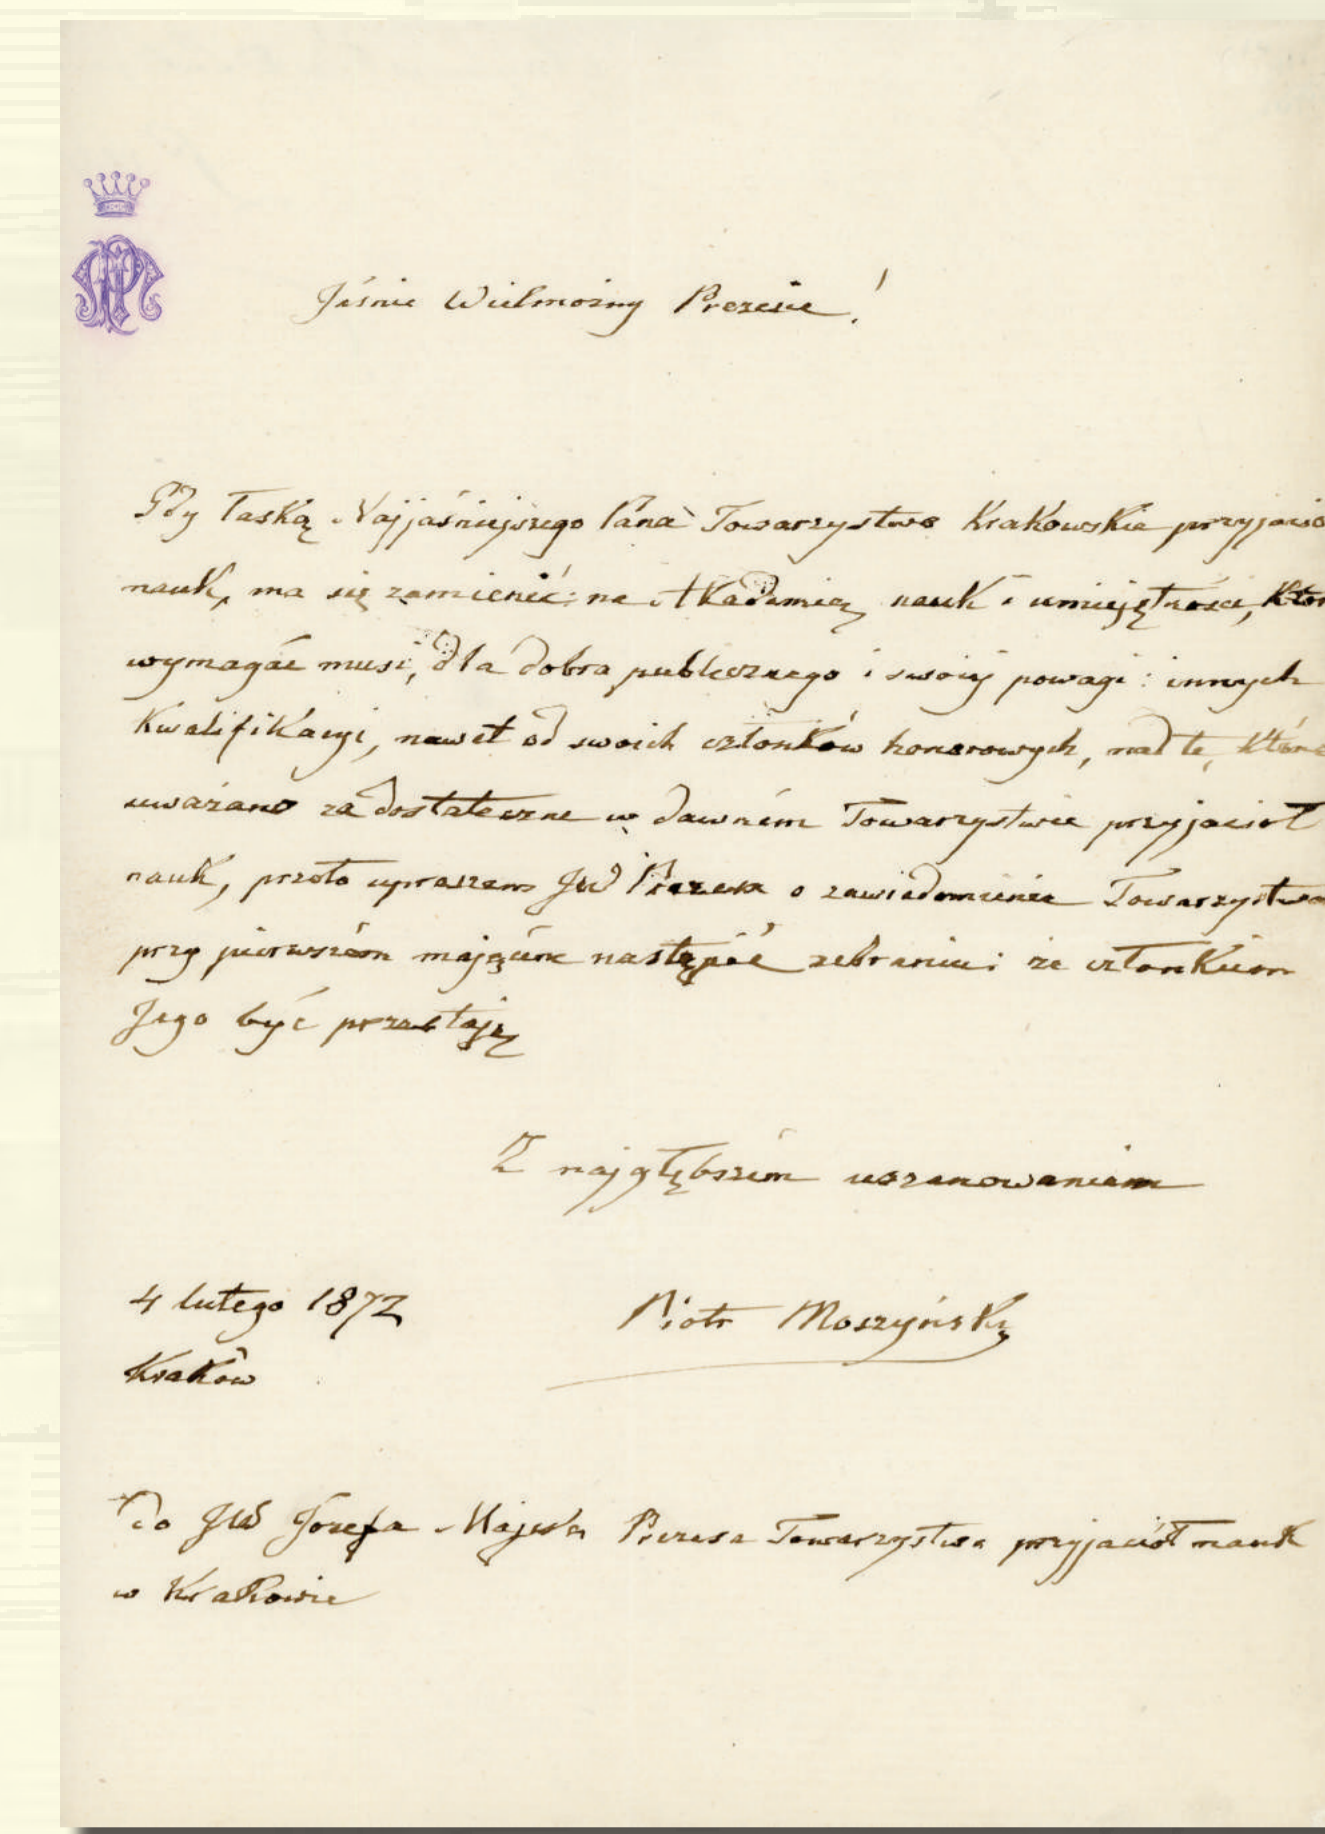 Jaśnie Wielmożny Prezesie!
Gdy łaską Najjaśniejszego Pana Towarzystwo Krakowskie przyjació
nauk, ma się zamienić: na Akademią nauk i umiejętności, Któr
wymagać musi, dla dobra publicznego i swoiéj powagi: innych
Kwalifikacyi, nawet od swoich członków honorowych, nad te, które
uważano za dostateczne w dawném Towarzystwie przyjaciół
nauk, przeto upraszam JW Prezesa o zawiadomienie Towarzystwa
przy pierwszém mającém nastąpić zebraniu: że członkiem
Jego być przestaję
Z najgłębszém uszanowaniem
4 lutego 1872
Piotr Moszyński
Kraków
do JW Józefa Majera Prezesa Towarzystwa przyjaciół nauk
w Krakowie